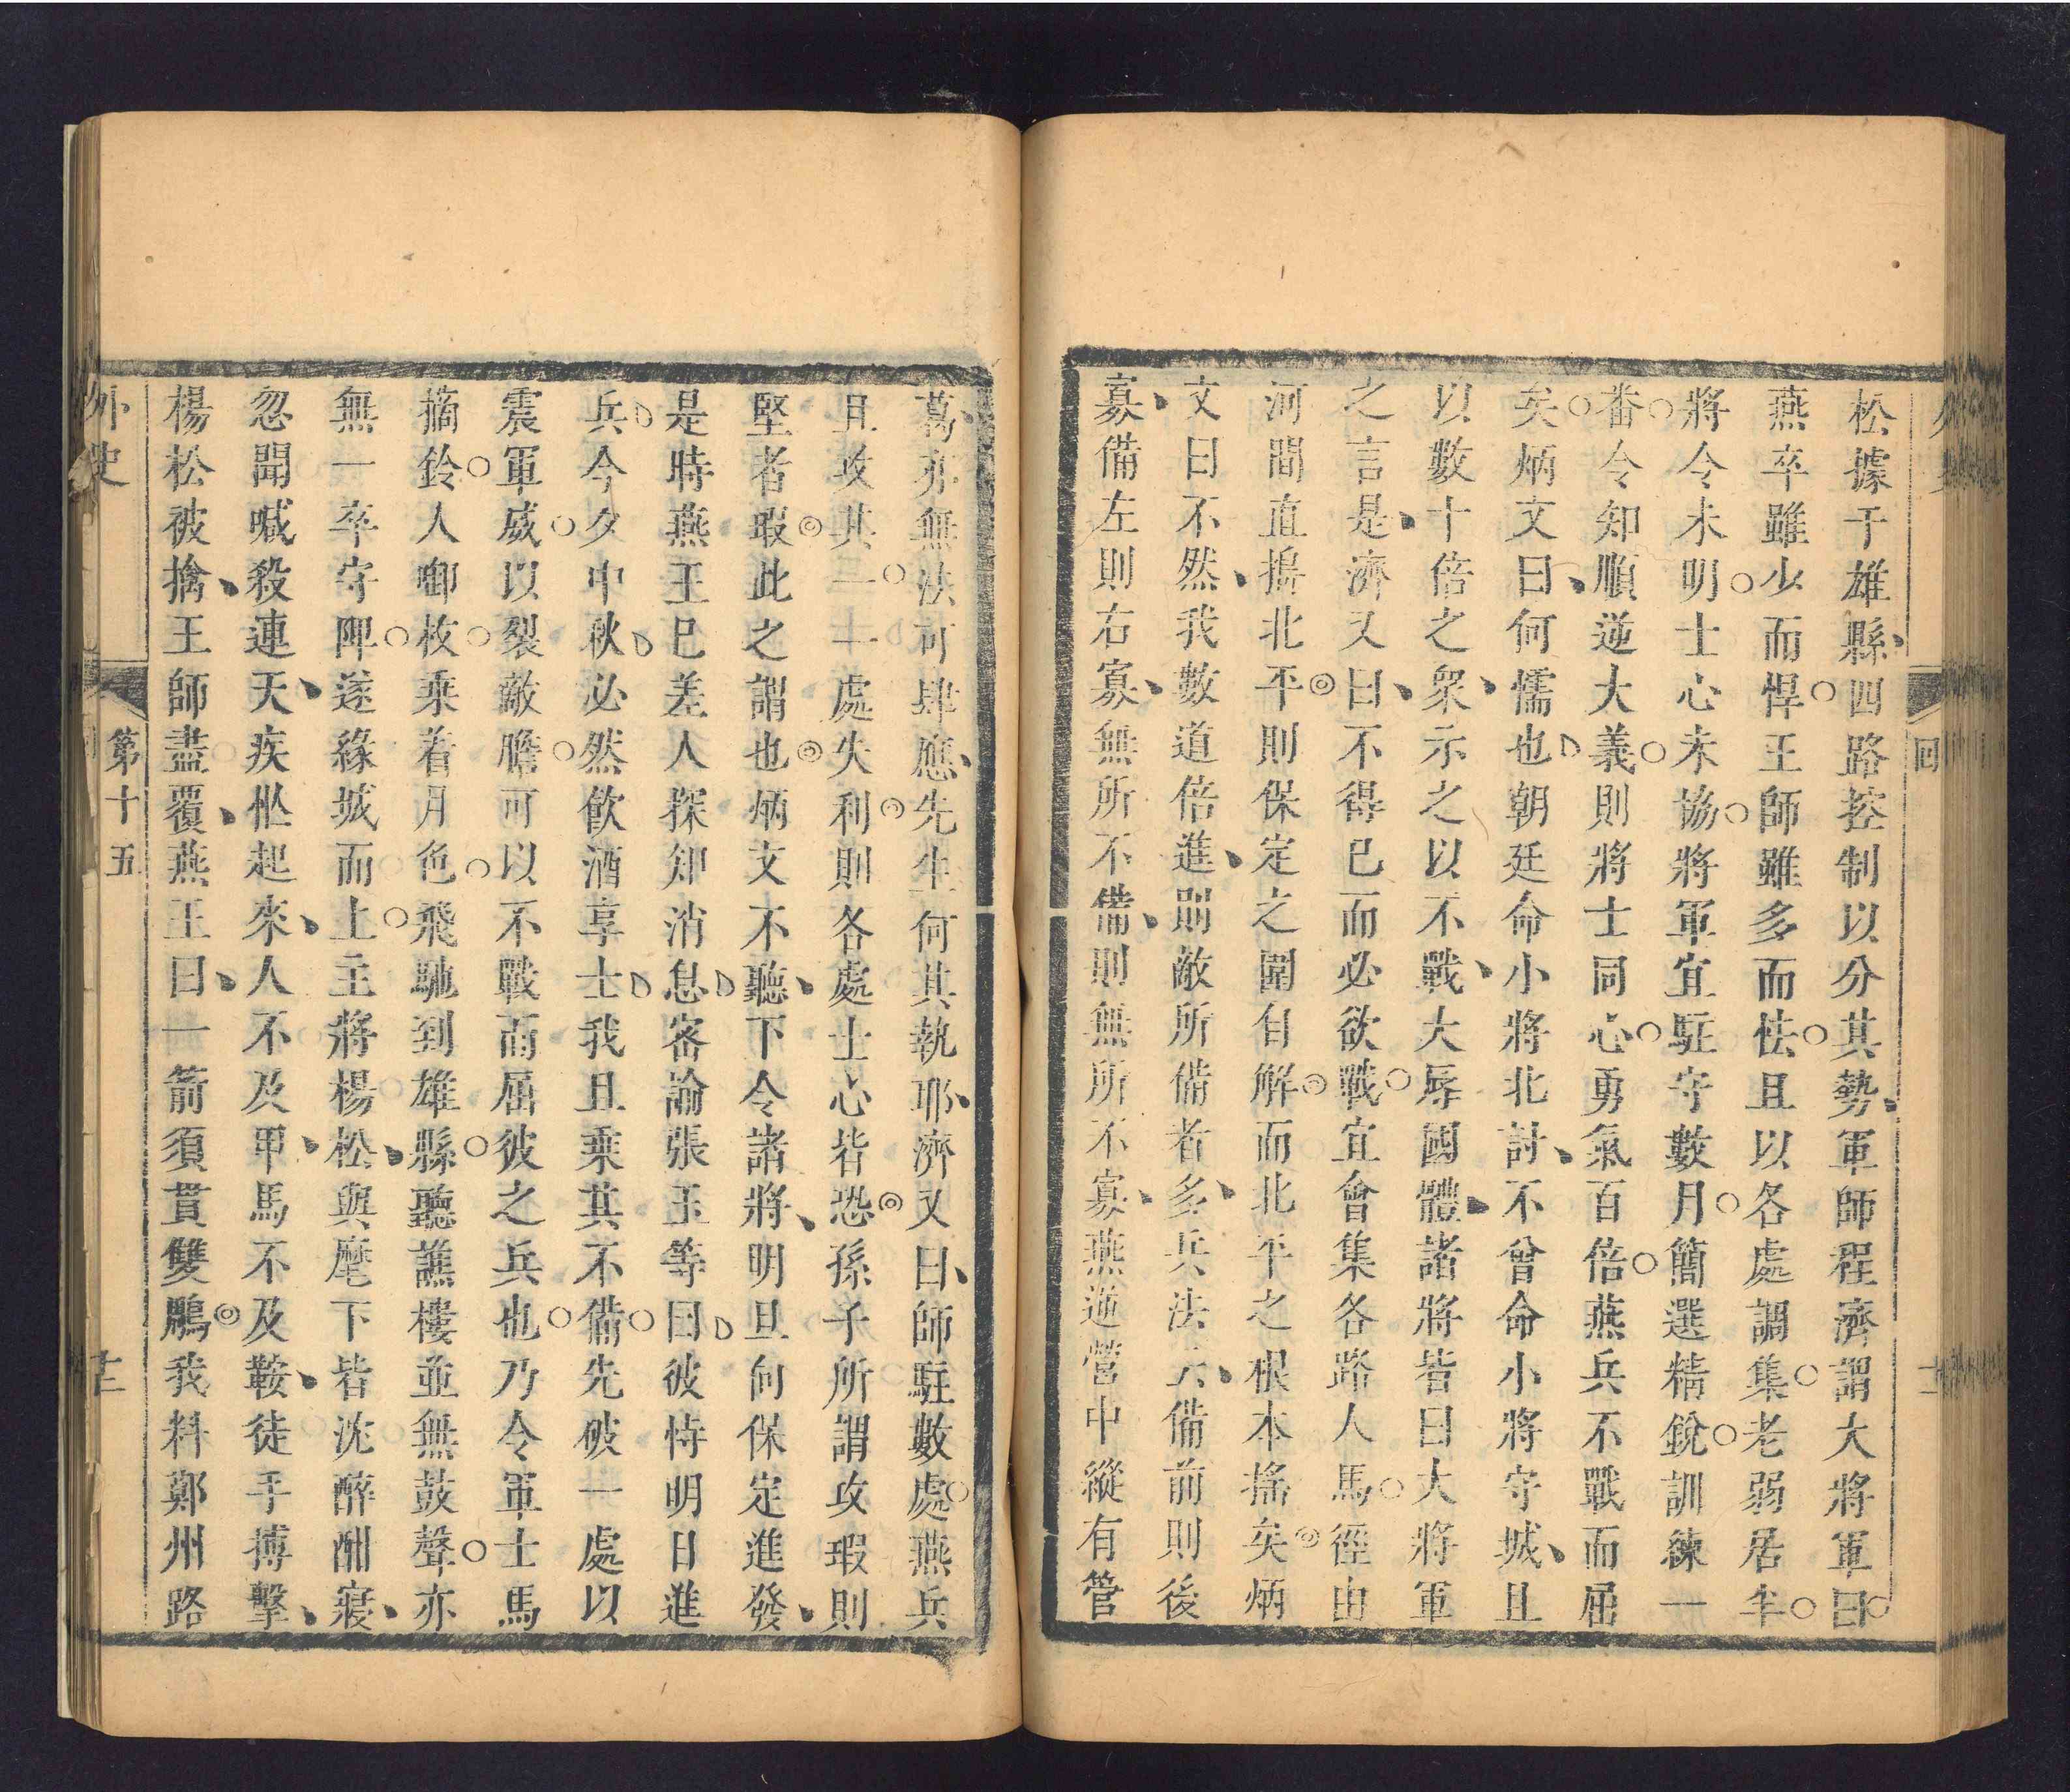 松據于雄縣四路控制以分其勢軍師程濟謂大將軍曰
燕卒雖少而悍王師雖多而怯且以各處調集老弱居半
將令未明士心未協將軍宜駐守數月簡選精銳訓練一
番令知順逆大義則將士同心勇氣百倍燕兵不戰而屈
矣炳文曰何懦也朝廷命小將北討不曾命小將守城且
以數十倍之衆示之以不戰大辱國體諸將皆曰大將軍
之言是濟又曰不得已而必欲戰宜會集各路人馬徑由
河間直搗北平則保定之圍自解而北平之根本搖矣炳
文曰不然我數道倍進則敵所備者多兵法云備前則後
寡備左則右寡無所不備則無所不寡燕逆營中縱有管
葛亦無法可肆應先生何其執耶濟又曰師駐數處燕兵
且攻其一一處失利則各處士心皆恐孫子所謂攻瑕則
堅者瑕此之謂也炳文不聽下令諸將明旦向保定進發
是時燕王已差人探知消息密諭張玉等曰彼恃明日進
兵今夕中秋必然飲酒享士我且乗其不備先破一處以
震軍威以裂敵膽可以不戰而屈彼之兵也乃令軍士馬
摘鈴人啣枚乗着月色飛馳到雄縣聽譙樓並無鼓聲亦
無一卒守陴遂緣城而上主將楊松與麾下皆沈醉酣寢
忽聞喊殺連天疾忙起來人不及甲馬不及鞍徒手搏擊
楊松被擒王師盡覆燕王曰一箭須貫雙鵰我料鄭州路
外史
第十五
十二